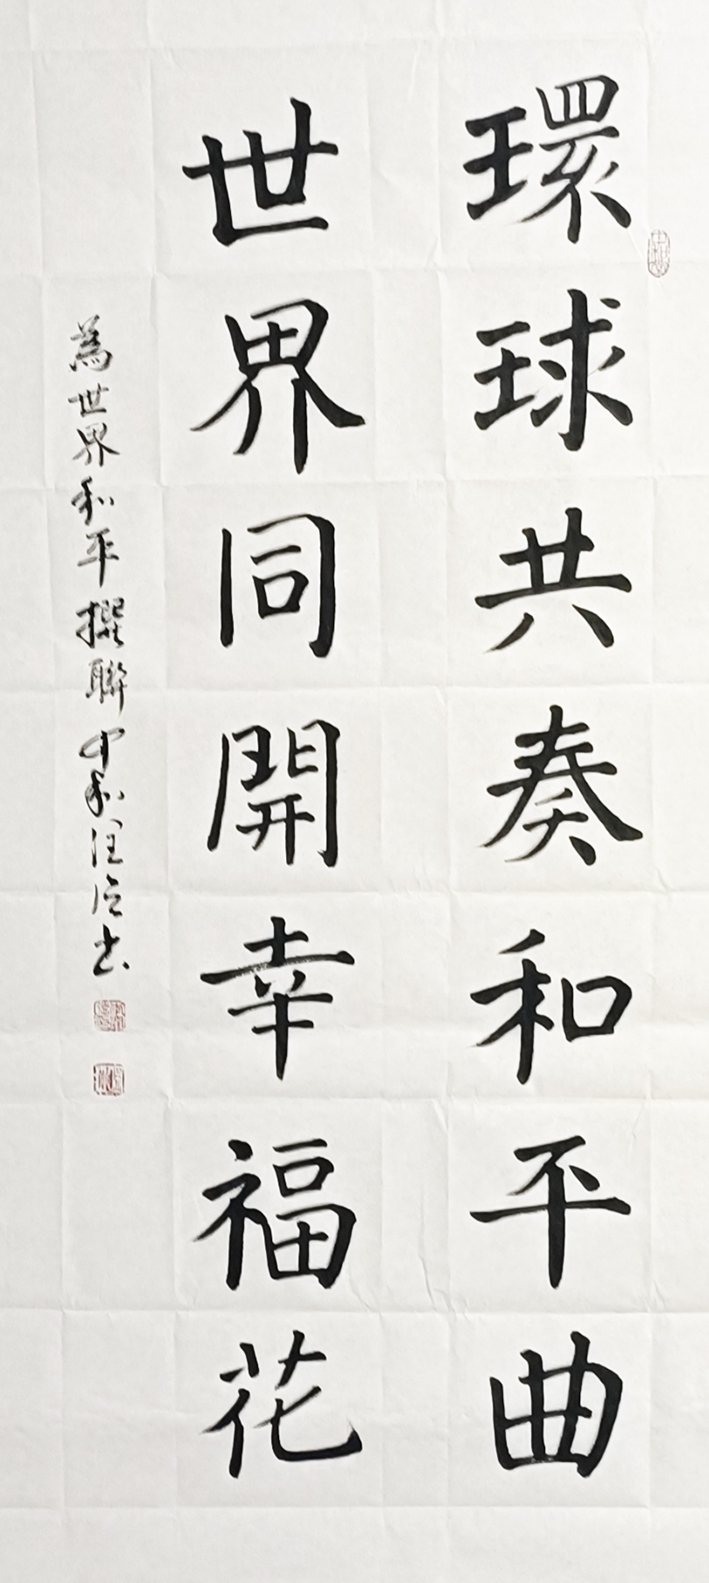 環球共奏和平曲
世界同開幸福花
為世界和平撰聯